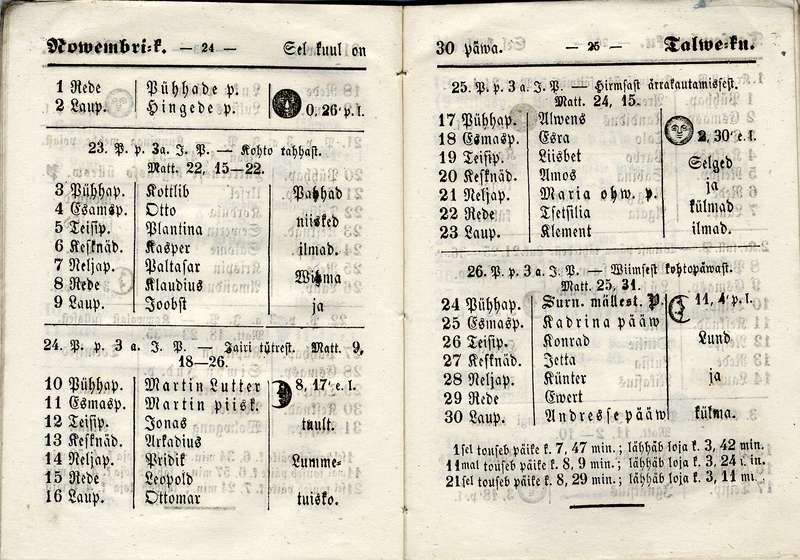 Nowembri-k. — 24 — Sel kuul on
1 Rede Pühhade p.
2 Laup. Hingede p. 0, 26' p. l.
23. P. p. 3 a. J. P. — Kohto rahhast.
Matt. 22, 15—22.
3 Pühhap. Kottlib Pahhad
4 Esmasp. Otto
5 Teisip. Plantina niisked
6 Kesknäd. Kasper ilmad.
7 Neljap. Paltasar
8 Rede Klaudius Wihma
9 Laup. Joobst ja
24. P. p. 3 a. J. P. — Jairi tütrest. Matt. 9,
18—26.
10 Pühhap. Martin Lutter 8, 17' e. l.
11 Esmasp. Martin piisk.
12 Teisip. Jonas tuult.
13 Kesknäd. Arkadius
14 Neljap. Pridik Lumme-
15 Rede Leopold
16 Laup. Ottomar tuisko.
30 päwa. — 25 — Talwe-ku.
25. P. p. 3 a. J. P. — Hirmsast ärrakautamissest.
Matt. 24, 15.
17 Pühhap. Alwens
18 Esmasp. Esra 2, 30' e. l.
19 Teisip. Liisbet Selged
20 Kesknäd. Amos ja
21 Neljap. Maria ohw. p.
22 Rede Tsetsilia külmad
23 Laup. Klement ilmad.
26. P. p. 3 a. J. P. — Wiimsest kohtopäwast.
Matt. 25, 31.
24 Pühhap. Surn. mällest. P. 11, 4' p. l.
25 Esmasp. Kadrina pääw
26 Teisip. Konrad Lund
27 Kesknäd. Jetta
28 Neljap. Künter ja
29 Rede Ewert
30 Laup. Andresse pääw külma.
1sel touseb päike k. 7, 47 min.; lähhäb loja k. 3, 42 min.
11mal touseb päike k. 8, 9 min.; lähhäb loja k. 3, 24
21sel touseb päike k. 8, 29 min.; lähhäb loja k. 3, 11